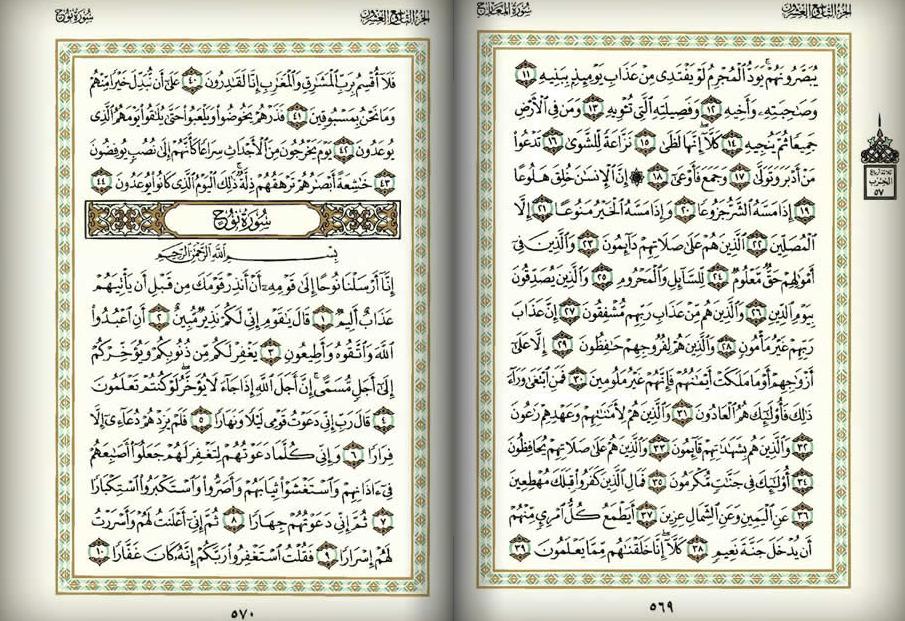 سُورَةُ المَعَارِجِ
الجُزْءُ التَّاسِعُ وَالعِشْرُونَ
يُبَصَّرُونَهُمْ يَوَدُّ الْمُجْرِمُ لَوْ يَفْتَدِى مِنْ عَذَابِ يَوْمِئِذٍ بِبَنِيهِ ١١
وَصَاحِبَتِهِ وَأَخِيهِ ١٢ وَفَصِيلَتِهِ الَّتِى تُئْوِيهِ ١٣ وَمَنْ فِى الْأَرْضِ
جَمِيعًا ثُمَّ يُنْجِيهِ ١٤ كَلَّا إِنَّهَا لَظَى ١٥ نَزَّاعَةً لِلشَّوَى ١٦ تَدْعُوا
مَنْ أَدْبَرَ وَتَوَلَّى ١٧ وَجَمَعَ فَأَوْعَى ١٨ ۞ إِنَّ الْإِنسَانَ خُلِقَ هَلُوعًا
١٩ إِذَا مَسَّهُ الشَّرُّ جَزُوعًا ٢٠ وَإِذَا مَسَّهُ الْخَيْرُ مَنُوعًا ٢١ إِلَّا
الْمُصَلِّينَ ٢٢ الَّذِينَ هُمْ عَلَى صَلَاتِهِمْ دَائِمُونَ ٢٣ وَالَّذِينَ فِى
أَمْوَالِهِمْ حَقٌّ مَعْلُومٌ ٢٤ لِلسَّائِلِ وَالْمَحْرُومِ ٢٥ وَالَّذِينَ يُصَدِّقُونَ
بِيَوْمِ الدِّينِ ٢٦ وَالَّذِينَ هُمْ مِنْ عَذَابِ رَبِّهِمْ مُشْفِقُونَ ٢٧ إِنَّ عَذَابَ
رَبِّهِمْ غَيْرُ مَأْمُونٍ ٢٨ وَالَّذِينَ هُمْ لِفُرُوجِهِمْ حَافِظُونَ ٢٩ إِلَّا عَلَى
أَزْوَاجِهِمْ أَوْ مَا مَلَكَتْ أَيْمَانُهُمْ فَإِنَّهُمْ غَيْرُ مَلُومِينَ ٣٠ فَمَنِ ابْتَغَى وَرَاءَ
ذَلِكَ فَأُولَئِكَ هُمُ الْعَادُونَ ٣١ وَالَّذِينَ هُمْ لِأَمَانَاتِهِمْ وَعَهْدِهِمْ رَاعُونَ
٣٢ وَالَّذِينَ هُمْ بِشَهَادَاتِهِمْ قَائِمُونَ ٣٣ وَالَّذِينَ هُمْ عَلَى صَلَاتِهِمْ يُحَافِظُونَ
٣٤ أُولَئِكَ فِى جَنَّاتٍ مُكْرَمُونَ ٣٥ فَمَالِ الَّذِينَ كَفَرُوا قِبَلَكَ مُهْطِعِينَ
٣٦ عَنِ الْيَمِينِ وَعَنِ الشِّمَالِ عِزِينَ ٣٧ أَيَطْمَعُ كُلُّ امْرِئٍ مِنْهُمْ
أَنْ يُدْخَلَ جَنَّةَ نَعِيمٍ ٣٨ كَلَّا إِنَّا خَلَقْنَاهُمْ مِمَّا يَعْلَمُونَ ٣٩
ثلاثة أرباع
الحزب
٥٧
٥٦٩
سُورَةُ نُوحٍ
الجُزْءُ التَّاسِعُ وَالعِشْرُونَ
فَلَا أُقْسِمُ بِرَبِّ الْمَشَارِقِ وَالْمَغَارِبِ إِنَّا لَقَادِرُونَ ٤٠ عَلَى أَنْ نُبَدِّلَ خَيْرًا مِنْهُمْ
وَمَا نَحْنُ بِمَسْبُوقِينَ ٤١ فَذَرْهُمْ يَخُوضُوا وَيَلْعَبُوا حَتَّى يُلَاقُوا يَوْمَهُمُ الَّذِى
يُوعَدُونَ ٤٢ يَوْمَ يَخْرُجُونَ مِنَ الْأَجْدَاثِ سِرَاعًا كَأَنَّهُمْ إِلَى نُصُبٍ يُوفِضُونَ
٤٣ خَاشِعَةً أَبْصَارُهُمْ تَرْهَقُهُمْ ذِلَّةٌ ذَلِكَ الْيَوْمُ الَّذِى كَانُوا يُوعَدُونَ ٤٤
سُورَةُ نُوحٍ
بِسْمِ اللَّهِ الرَّحْمَنِ الرَّحِيمِ
إِنَّا أَرْسَلْنَا نُوحًا إِلَى قَوْمِهِ أَنْ أَنذِرْ قَوْمَكَ مِنْ قَبْلِ أَنْ يَأْتِيَهُمْ
عَذَابٌ أَلِيمٌ ١ قَالَ يَاقَوْمِ إِنِّى لَكُمْ نَذِيرٌ مُبِينٌ ٢ أَنِ اعْبُدُوا
اللَّهَ وَاتَّقُوهُ وَأَطِيعُونِ ٣ يَغْفِرْ لَكُمْ مِنْ ذُنُوبِكُمْ وَيُؤَخِّرْكُمْ
إِلَى أَجَلٍ مُسَمًّى إِنَّ أَجَلَ اللَّهِ إِذَا جَاءَ لَا يُؤَخَّرُ لَوْ كُنْتُمْ تَعْلَمُونَ
٤ قَالَ رَبِّ إِنِّى دَعَوْتُ قَوْمِى لَيْلًا وَنَهَارًا ٥ فَلَمْ يَزِدْهُمْ دُعَاءِى إِلَّا
فِرَارًا ٦ وَإِنِّى كُلَّمَا دَعَوْتُهُمْ لِتَغْفِرَ لَهُمْ جَعَلُوا أَصَابِعَهُمْ
فِى ءَاذَانِهِمْ وَاسْتَغْشَوْا ثِيَابَهُمْ وَأَصَرُّوا وَاسْتَكْبَرُوا اسْتِكْبَارًا
٧ ثُمَّ إِنِّى دَعَوْتُهُمْ جِهَارًا ٨ ثُمَّ إِنِّى أَعْلَنْتُ لَهُمْ وَأَسْرَرْتُ
لَهُمْ إِسْرَارًا ٩ فَقُلْتُ اسْتَغْفِرُوا رَبَّكُمْ إِنَّهُ كَانَ غَفَّارًا ١٠
٥٧٠